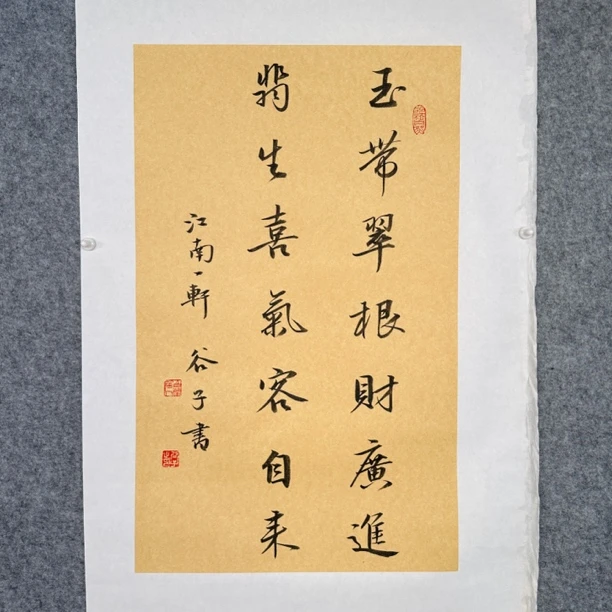 玉带翠根財廣進
翡生喜氣客自来
江南一軒 谷子书